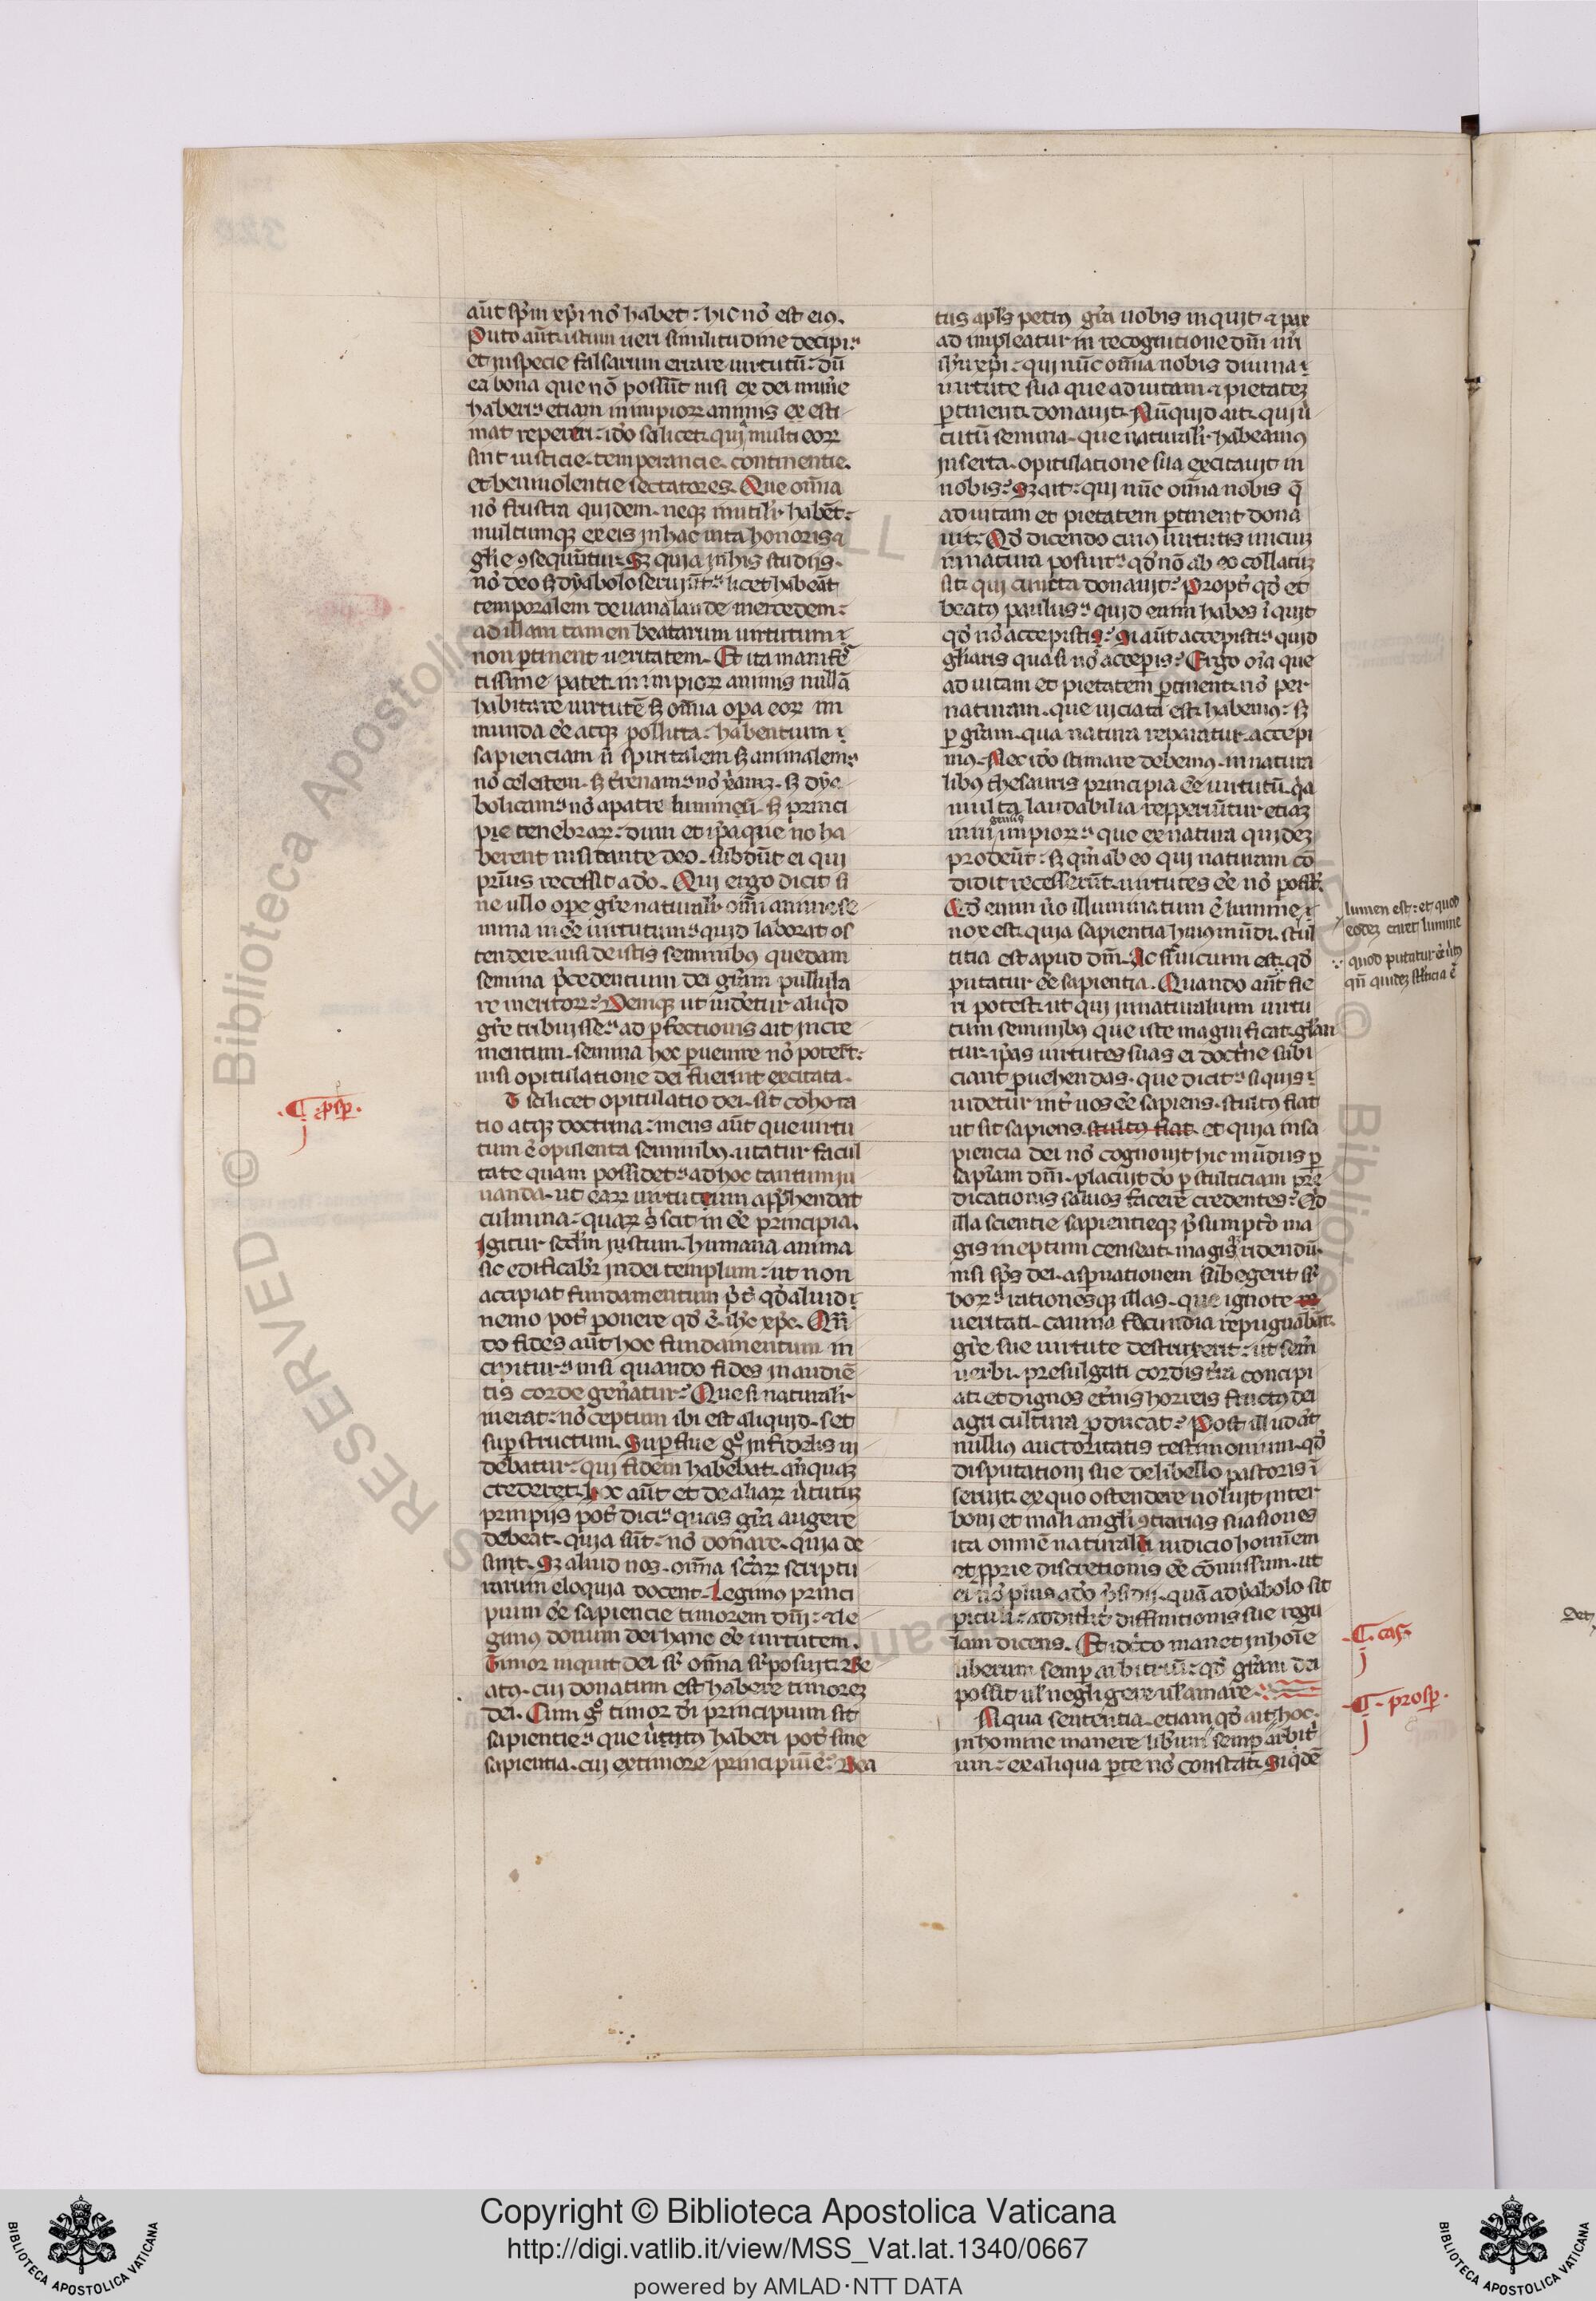 aūt sp̄m xp̄i nō habet: hic nō est eiꝰ.
Puto aūt istum ueri similitudine decipi:
et in specie falsarum errare uirtutū: dū
ea bona que nō possūt nisi ex dei mūe
haberi: etiam in impioꝝ animis ex esti
mat reperiri: id̄o scilicet qui multi eoꝝ
sint iusticie. temperancie. continentie.
et beniuolentie sectatores. Que om̄ia
nō frustra quidem. neqꝫ inutilr̄ habēt:
multumqꝫ ex eis in hac uita honoris ⁊
glīe ꝯsequūtur. Sꝫ quia in his studijs.
nō deo sꝫ dyabolo seruiūt: licet habeāt
temporalem de uana laude mercedem:
ad illam tamen beatarum uirtutum
non ꝑtinent ueritatem. Et ita manifes
tissime patet. in impioꝝ animis nullā
habitare uirtutē sꝫ om̄ia oꝑa eoꝝ im
munda eē atqꝫ polluta: habentium
sapienciam n̄ spiritalem sꝫ animalem:
nō celestem. sꝫ t̄renam: nō xp̄ianā. sꝫ dya
bolicam: nō a patre luminū. sꝫ princi
pie tenebraꝝ: dum et ip̄a que nō ha
berent nisi dante deo. subdūt ei qui
prius recessit a dō. Qui ergo dicit si
ne ullo oꝑe gr̄e naturalr̄ om̄i anime se
mina inēe uirtutum: quid laborat os
tendere. nisi de istis seminibꝰ quedam
semina p̄cedentium dei gr̄am pullula
re meritoꝝ: Denique ut uidetur aliqd
gr̄e tribuisse: ad ꝑfectionis ait incre
mentum. semina hec ꝑuenire nō potest:
nisi opitulatione dei fuerint excitata.
¶ p̄sp̄.
Ut scilicet opitulatio dei. sit cohorta
tio atqꝫ doctrina: mens aūt que uirtu
tum ē opulenta seminibꝰ. utatur facul
tate quam possidet: ad hoc tantum iu
uanda. ut eaꝝ uirtutum app̄hendat
culmina: quaꝝ s̄ scit inēe principia.
Igitur scd̄m istum. humana anima
sic edificabr̄ in dei templum: ut non
accipiat fundamentum p̄t̄ qd̄ aliud
nemo pot̄ ponere qd̄ ē. ih̄c xp̄c. Qn̄
do fides aūt hoc fundamentum in
cipitur: nisi quando fides in audiē
tis corde gen̄atur: Que si naturalr̄
inerat: nō ceptum ibi est aliquid. set
suꝑstructum. Suꝑflue gͦ infidelis ui
debatur: qui fidem habebat. anquaꝫ
crederet. Hoc aūt et de aliaꝝ ūtutuꝫ
principijs pot̄ dici: quas gr̄a augere
debeat. quia sūt: nō donare. quia de
sunt. Sꝫ aliud nos. om̄ia sc̄aꝝ scriptu
rarum eloquia docent. Legimꝰ princi
pium eē sapiencie timorem dn̄i: ⁊ le
gimꝰ donum dei hanc eē uirtutem.
Timor inquit dei sr̄ om̄ia sr̄posuit: Be
atꝰ. cui donatum est habere timoreꝫ
dei. Cum gͦ timor dn̄i principium sit
sapientie: que ūtutꝰ haberi pot̄ sine
sapientia. cui ex timore principiū ē: Bea
tus apl̄s petrꝰ gr̄a uobis inquit ⁊ pax
ad impleatur in recognitione dn̄i nr̄i
ih̄u xp̄i: qui nūc om̄ia nobis diuina
uirtute sua que ad uitam ⁊ pietateꝫ
ꝑtinent. donauit. Nūquid ait. qui ūi
tutū semina. que naturalr̄ habeamꝰ
inserta. opitulatione sua excitauit in
nobis: Sꝫ ait: qui nūc om̄ia nobis q̄
ad uitam et pietatem ꝑtinent dona
uit: Qd̄ dicendo cuiꝰ uirtutis iniciuꝫ
in natura posuit: qd̄ nō ab eo collatuꝫ
sit. qui cuncta donauit: Propt̄ qd̄ et
beatꝰ paulus: quid enim habes īquit
qd̄ nō accepisti: Si aūt accepisti: quid
gl̄iaris quasi nō acceperis: Ergo om̄ia que
ad uitam et pietatem ꝑtinent. nō per
naturam. que uiciata est. habemꝰ: sꝫ
ꝑ gr̄am. qua natura reparatur. accepi
mꝰ. Nec id̄o stimare debemꝰ. in natura
libꝰ thesauris principia eē uirtutū. qa
multa laudabilia repperiūtur etiaꝫ
in ingeniis impioꝝ: que ex natura quideꝫ
prodeūt: sꝫ qm̄ ab eo qui naturam cō
didit recesserūt. uirtutes eē nō possūt.
Qd̄ enim ūo illuminatum ē lumine
nox est. quia sapientia huiꝰ mūdi. stul
titia est apud dm̄. Ac si uicium est. qd̄
putatur eē sapientia. Quando aūt fie
ri potest. ut qui in naturalium uirtu
tum seminibꝰ que iste magnificat. gl̄an
tur. ip̄as uirtutes suas ei doct̄ne subi
ciant ꝓuehendas. que dicit: si quis
uidetur int̄ uos eē sapiens. stultꝰ fiat
ut sit sapiens. stultꝰ fiat. et quia in sa
piencia dei nō cognouit hic mūdus ꝑ
sapīam dm̄. placuit dō ꝑ stulticiam pre
dicationis saluos facere credentes: Qd
illa scientie sapientieqꝫ p̄sumptō ma
gis ineptum censeat. magisqꝫ ridendū.
nisi sp̄s dei. asꝑnationem subegerit sr̄
boꝝ: rationesqꝫ illas. que ignote
ueritati. canina fecundia repugnabāt.
gr̄e sue uirtute destruxerit: ut sem̄
uerbi. presulgati cordis t̄ra concipi
at. et dignos et̄nis horreis fructꝰ dei
agri cultura ꝑducat: Post illud āt
nulliꝰ auctoritatis testimonium. qd̄
disputationi sue de libello pastoris ī
seruit. ex quo ostendere uoluit inter
boni et mali angli ꝯtrarias suasiones
ita omnē naturali iudicio hominem
et ꝓprie discretionis eē cōmissum. ut
ei nō plus a dō p̄sidij. quā a dyabolo sit
ꝑiculi: addidit diffinitionis sue regu
lam dicens. Et idcirco manet in hoīe
liberum semꝑ arbitriū: qd̄ gr̄am dei
possit ul̄ negligere ul̄ amare.
A qua sententia. etiam qd̄ ait hoc.
in homine manere lib̄um semꝑ arbit̄
um: ex aliqua ꝑte nō constat. Siqdē
lumen est: et quod
eodeꝫ caret lumine
quod putatur ē ūtꝰ
qn̄ quideꝫ stlticia ē
¶. cas̄.
¶. prosꝑ.
Copyright © Biblioteca Apostolica Vaticana
http://digi.vatlib.it/view/MSS_Vat.lat.1340/0667
powered by AMLAD·NTT DATA
BIBLIOTECA APOSTOLICA VATICANA
BIBLIOTECA APOSTOLICA VATICANA